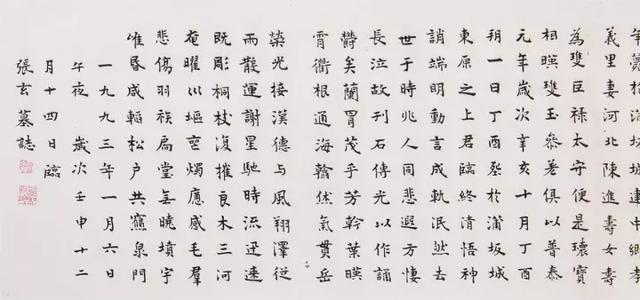 年薨於蒲坂城建中鄉孝
義里妻河北陳進壽女壽
為雙巨祿太守便是瓌寶
相暎雙玉參差俱以普泰
元年歲次辛亥十月丁酉
朔一日丁酉丞於蒲坂城
東原之上君臨終清悟神
誚端明動言成軌泯然去
世于時兆人同悲遐方悽
長泣故刊石傳光以作誦
鬱矣蘭冑茂乎芳幹葉暎
霄衢根通海翰休氣貫岳
榮光接漢德與風翔澤從
雨散運謝星馳時流迅速
既彫桐枝復摧良木三河
奄曜川塸堙燭應感毛羣
悲傷羽族扃堂無曉墳宇
唯昏咸輀松戶共寢泉門
一九九三年一月六日
午夜 歲次壬申十二
月十四日臨
張玄墓誌